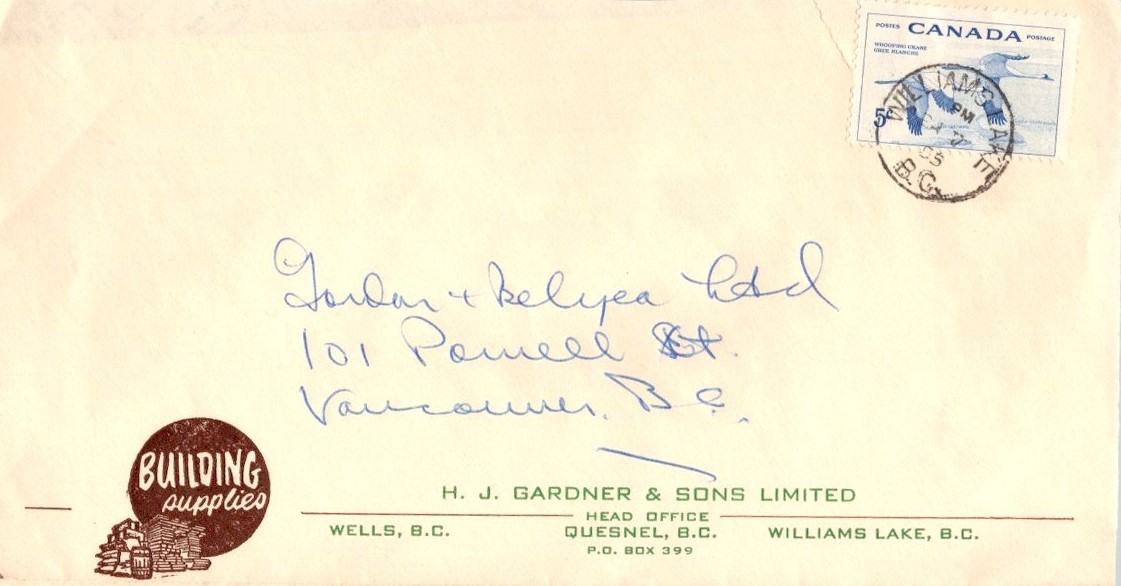 POSTES CANADA POSTAGE
WHOOPING CRANE
GRUE BLANCHE
5c
WILLIAMS LAKE
PM
7
B.C.
Gordon + Belyea Ltd
101 Powell St.
Vancouver. B.C.
BUILDING
supplies
H. J. GARDNER & SONS LIMITED
HEAD OFFICE
WELLS, B.C. QUESNEL, B.C. WILLIAMS LAKE, B.C.
P.O. BOX 399